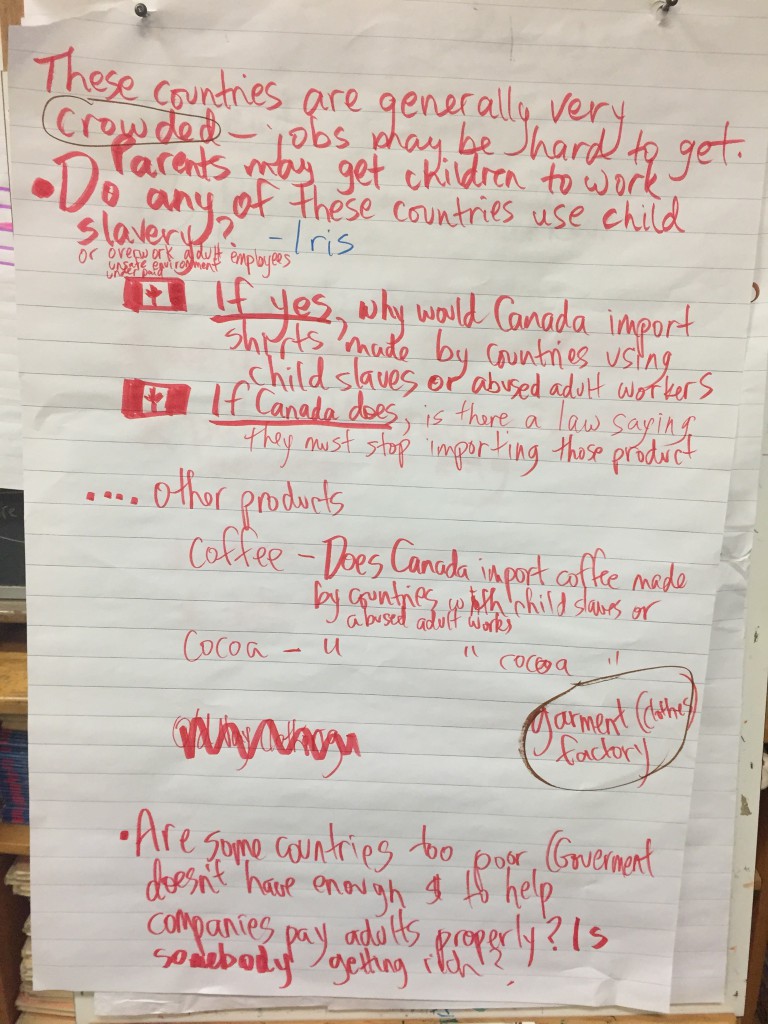 These countries are generally very
crowded – jobs may be hard to get.
Parents may get children to work
• Do any of these countries use child
slavery? – Iris
or overwork adult employees
unsafe environment
underpaid
If yes, why would Canada import
shirts made by countries using
child slaves or abused adult workers
If Canada does, is there a law saying
they must stop importing those product
.... other products
Coffee – Does Canada import coffee made
by countries with child slaves or
abused adult works
Cocoa – u " cocoa "
garment (clothes)
factory
• Are some countries too poor (Goverment
doesn't have enough $ to help
companies pay adults properly? Is
somebody getting rich?